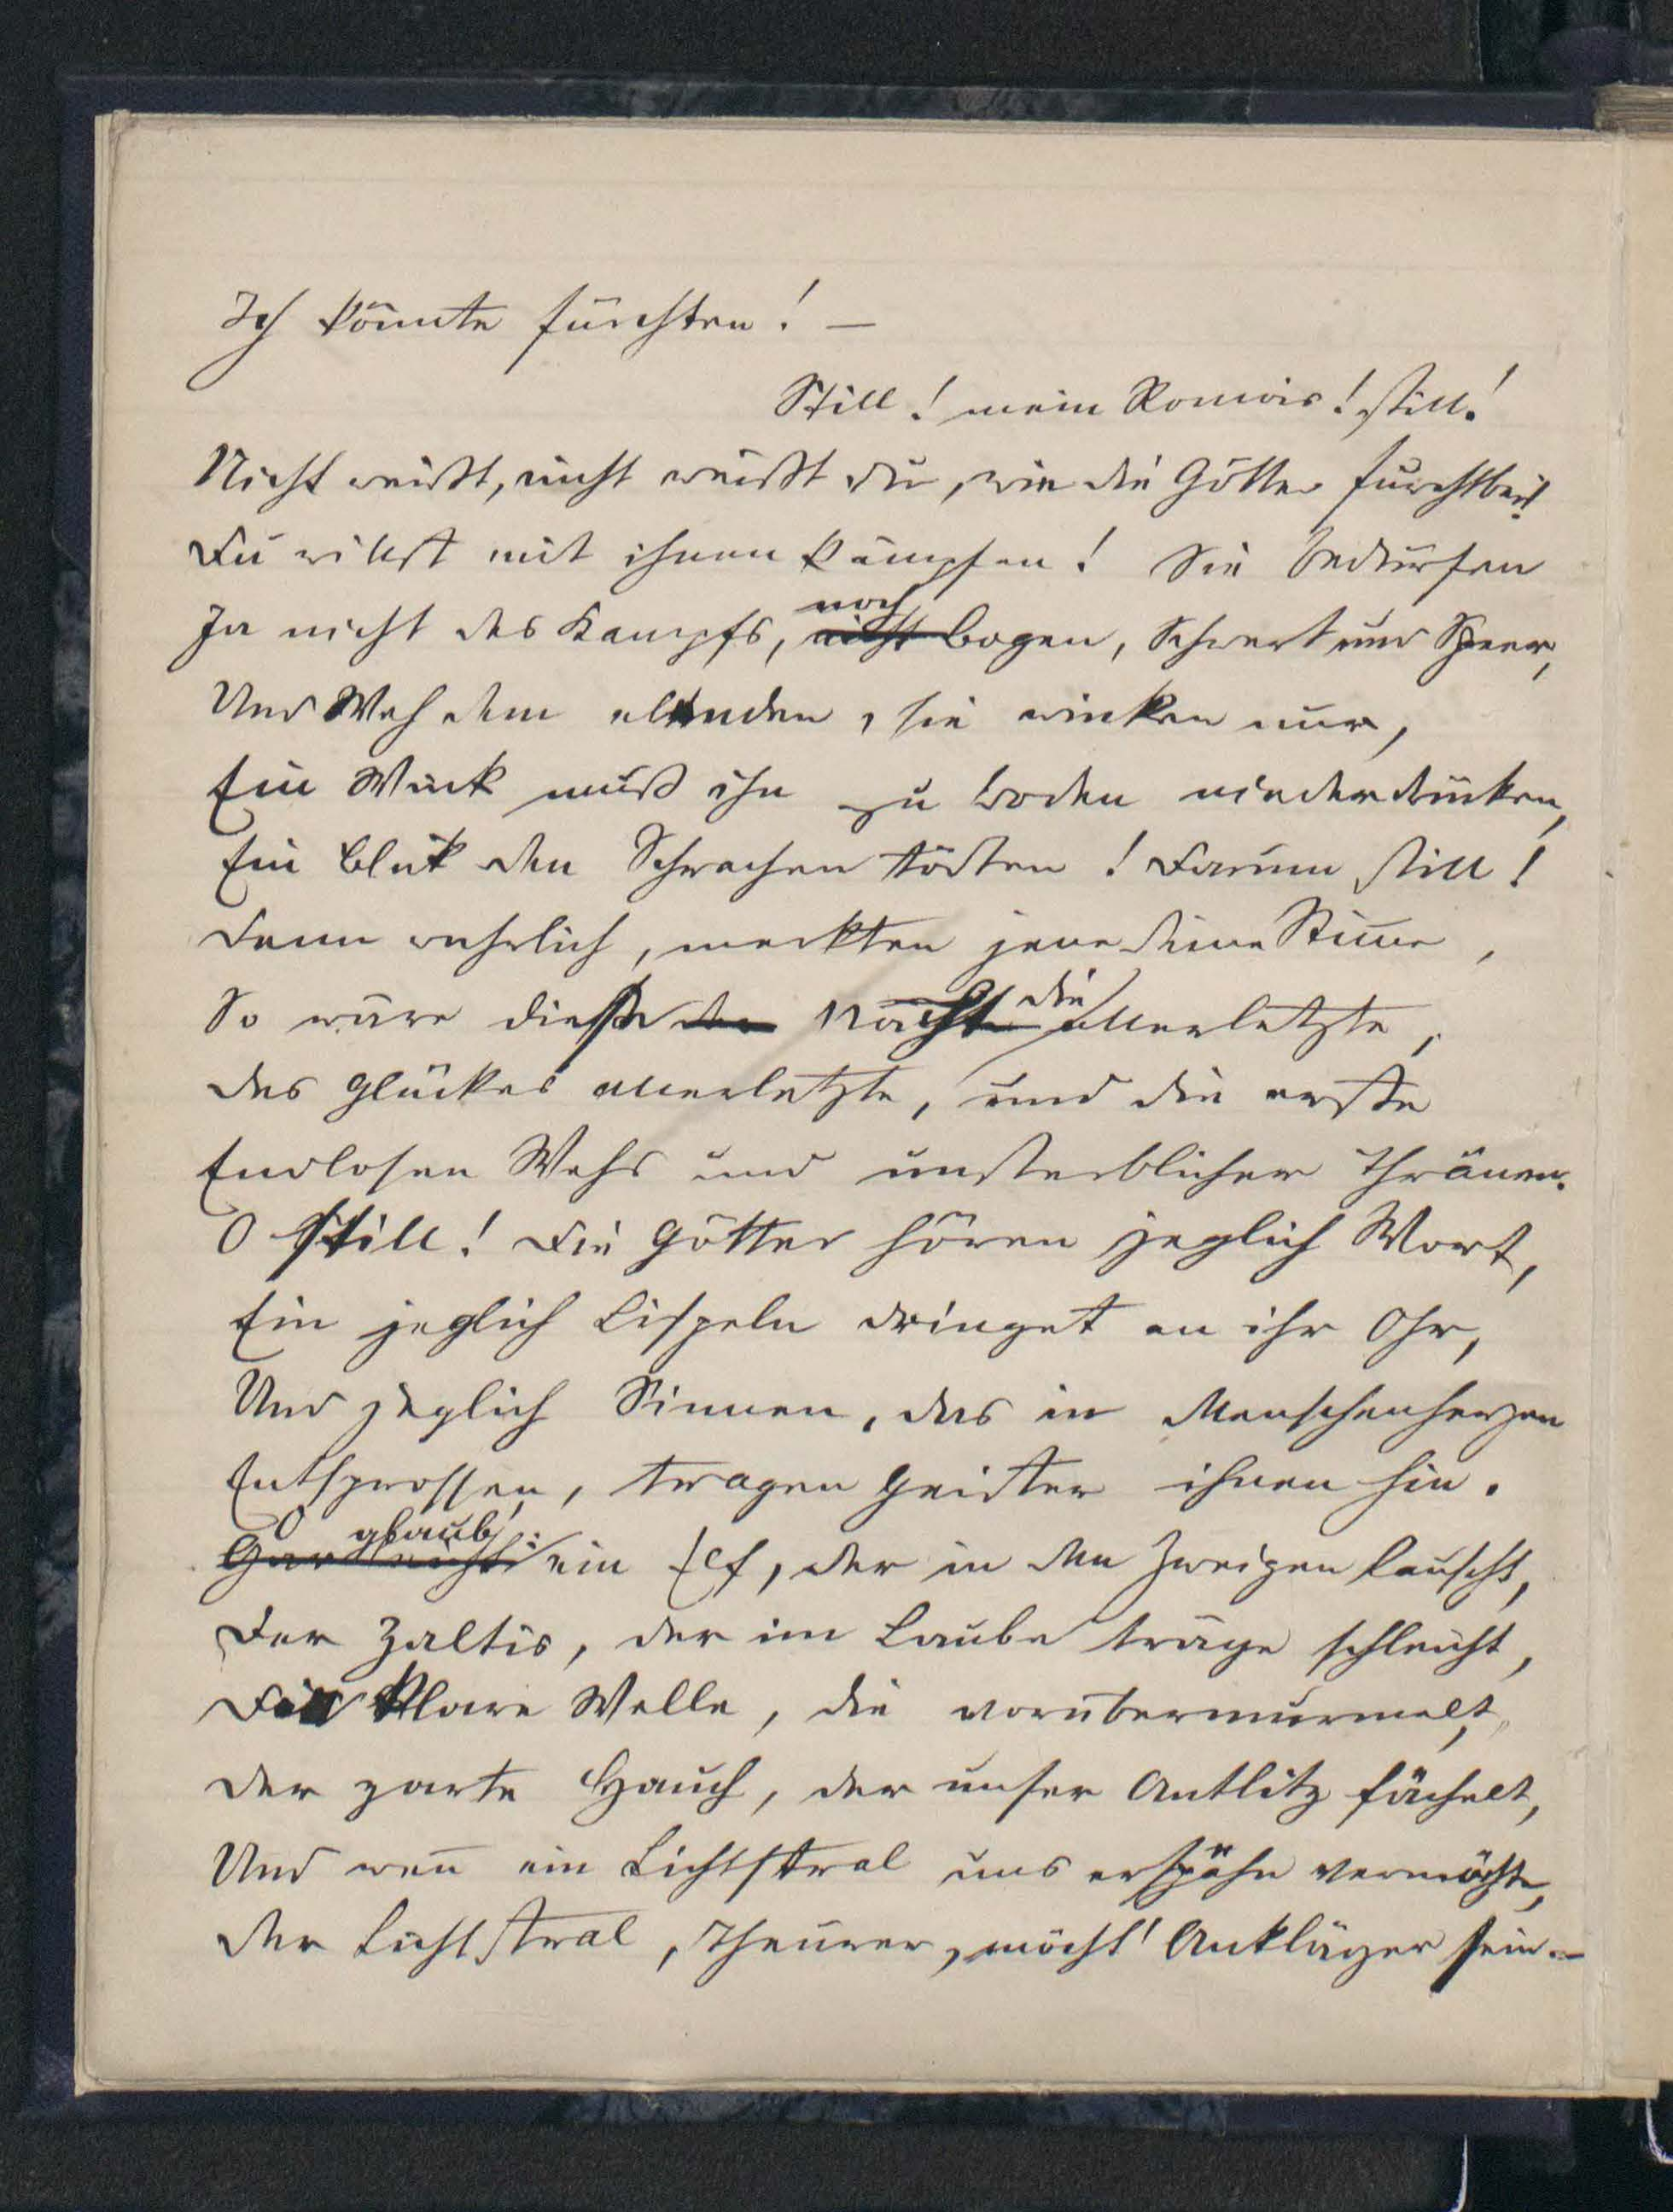 Ich könnte fürchten! —
Still! mein Romois! still!
Nicht weißt, nicht weißt du, wie die Götter furchtbar!
Du willst mit ihnen kämpfen! Sie bedürfen
Ja nicht des Kampfs, noch nicht Bogen, Schwert und Speer,
Und Weh dem elenden, sie winken nur,
Ein Wink muß ihn zu Boden niederdrücken,
Ein Blik den Schwachen tödten! Darum still!
Denn wahrlich, merkten jene deine Stimme,
So wäre diese der Nächte die allerletzte,
Des Glückes allerletzte, und die erste
Endlosen Wehs und unsterblicher Thränen.
O still! Die Götter hören jeglich Wort,
Ein jeglich Lispeln dringet an ihr Ohr,
Und jeglich Sinnen, das in Menschenherzen
Entsprossen, tragen Geister ihnen hin.
O glaub': Gar leicht ein Elf, der in den Zweigen lauscht,
Der Zaltis, der im Laube träge schleicht,
Die klare Welle, die vorübermurmelt,
Der zarte Hauch, der unser Antlitz fächelt,
Und wen̄ ein Lichtstral uns erspähn vermöchte,
Der Lichtstral, Theurer, möcht' Ankläger sein. —